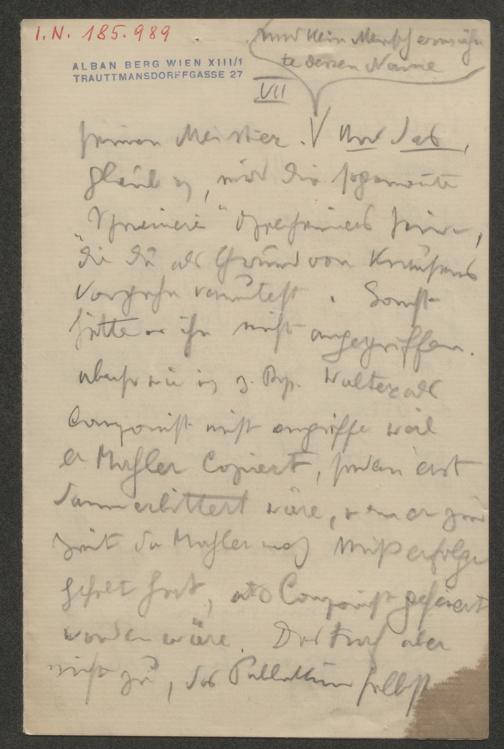 I.N. 185.989
und kein Mensch erwähn-
te dessen Name
ALBAN BERG WIEN XIII/1
TRAUTTMANSDORFFGASSE 27
VII
seinen Meister. Und das,
glaub ich, wird die sogenannte
" gewesen sein,
die Du als Grund von
vermutest. Sonst
hätte er ihn nicht angegriffen.
ich z. Bsp. Walter als
Componist nicht angriffe weil
er Mahler Copiert, sondern erst
dann erbittert wäre, wenn er zur
Zeit da Mahler noch Mißerfolge
gehabt hat, als Componist gefeiert
worden wäre. Das traf aber
nicht zu, das Publikum selbst